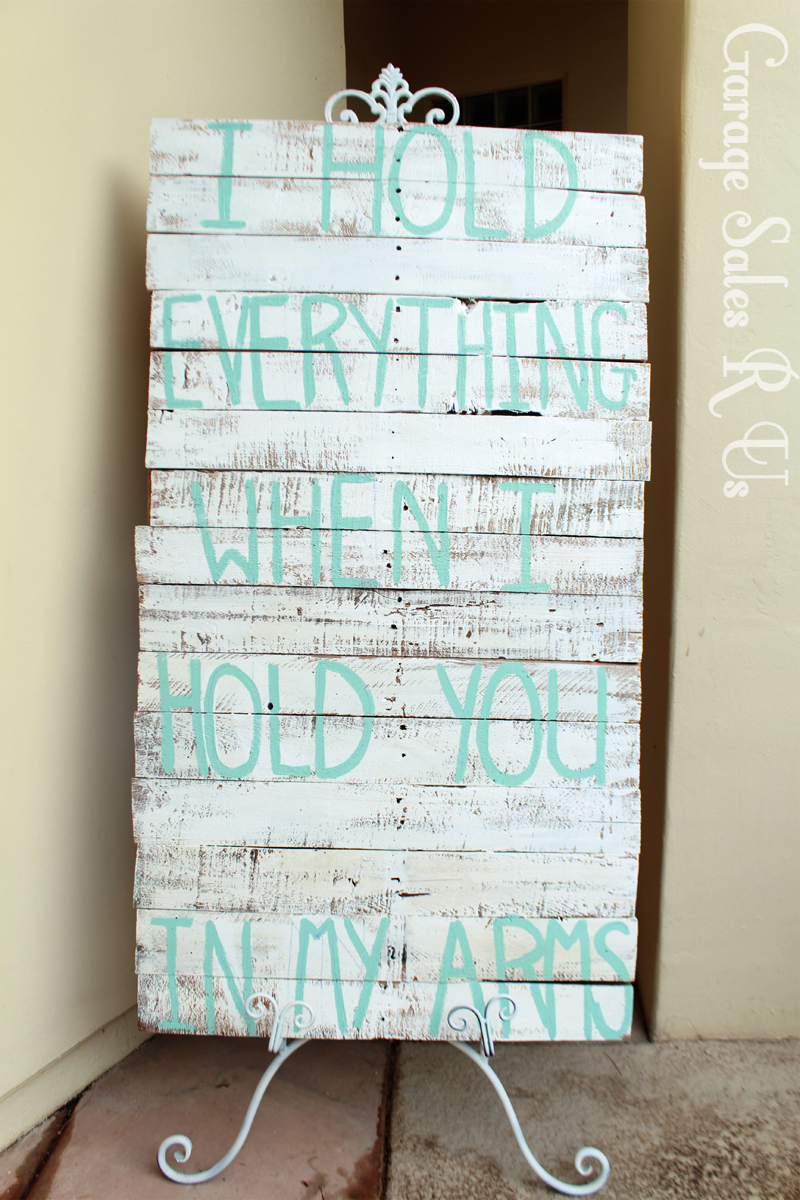 I HOLD
EVERYTHING
WHEN I
HOLD YOU
IN MY ARMS
Garage Sales R Us